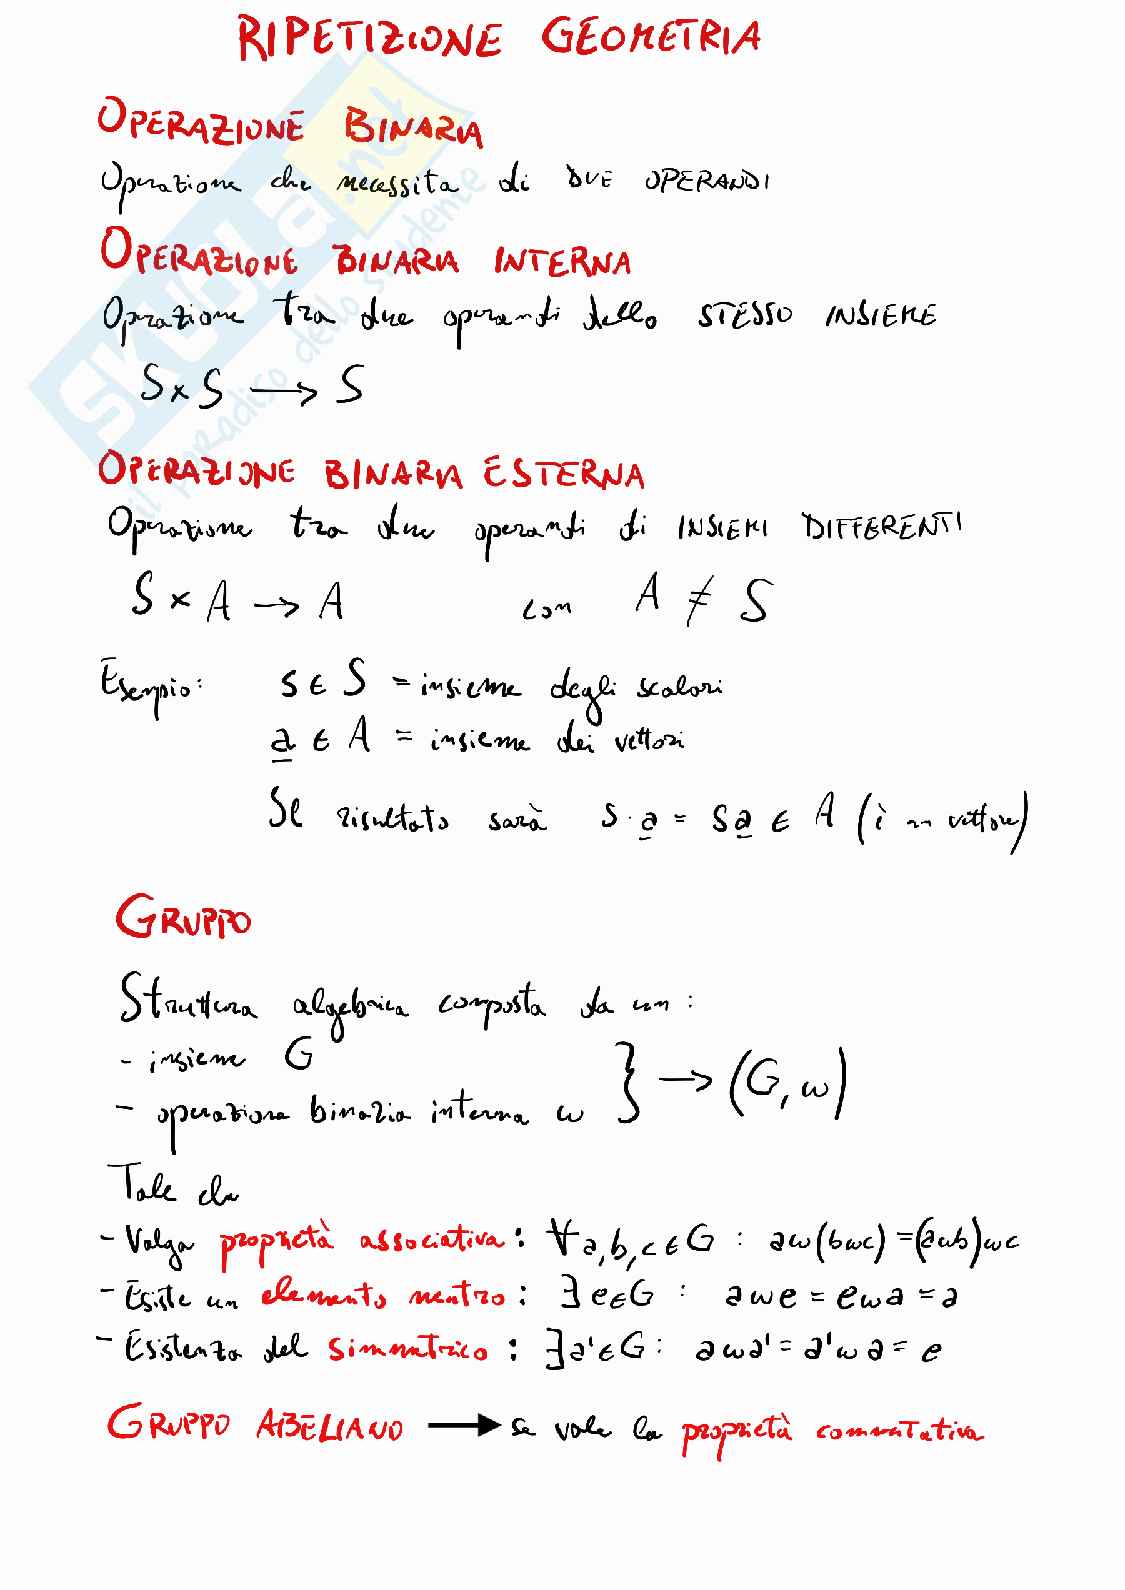 RIPETIZIONE GEOMETRIA
OPERAZIONE BINARIA
Operazione che necessita di DUE OPERANDI
OPERAZIONE BINARIA INTERNA
Operazione tra due operandi dello STESSO INSIEME
S × S → S
OPERAZIONE BINARIA ESTERNA
Operazione tra due operandi di INSIEMI DIFFERENTI
S × A → A con A ≠ S
Esempio: s ∈ S = insieme degli scalari
a ∈ A = insieme dei vettori
Il risultato sarà s · a = sa ∈ A (è un vettore)
GRUPPO
Struttura algebrica composta da un :
- insieme G
- operazione binaria interna ω } → (G, ω)
Tale che
- Valga proprietà associativa : ∀a,b,c ∈ G : aω(bωc) = (aωb)ωc
- Esiste un elemento neutro : ∃ e∈G : aωe = eωa = a
- Esistenza del simmetrico : ∃a'∈G : aωa' = a'ωa = e
GRUPPO ABELIANO → se vale la proprietà commutativa
SKUOLA.net
il paradiso dello studente